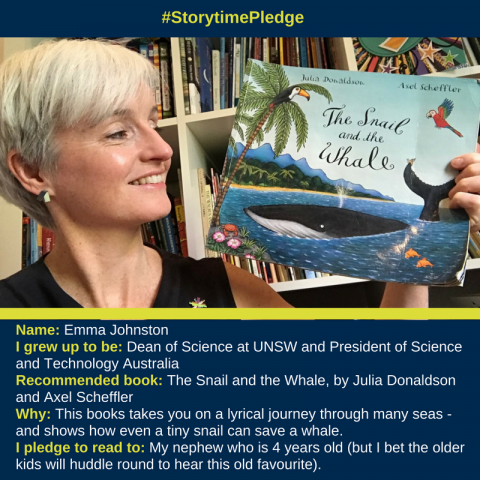 #StorytimePledge
Julia Donaldson
Axel Scheffler
The Snail
and the
Whale
Name: Emma Johnston
I grew up to be: Dean of Science at UNSW and President of Science
and Technology Australia
Recommended book: The Snail and the Whale, by Julia Donaldson
and Axel Scheffler
Why: This books takes you on a lyrical journey through many seas -
and shows how even a tiny snail can save a whale.
I pledge to read to: My nephew who is 4 years old (but I bet the older
kids will huddle round to hear this old favourite).